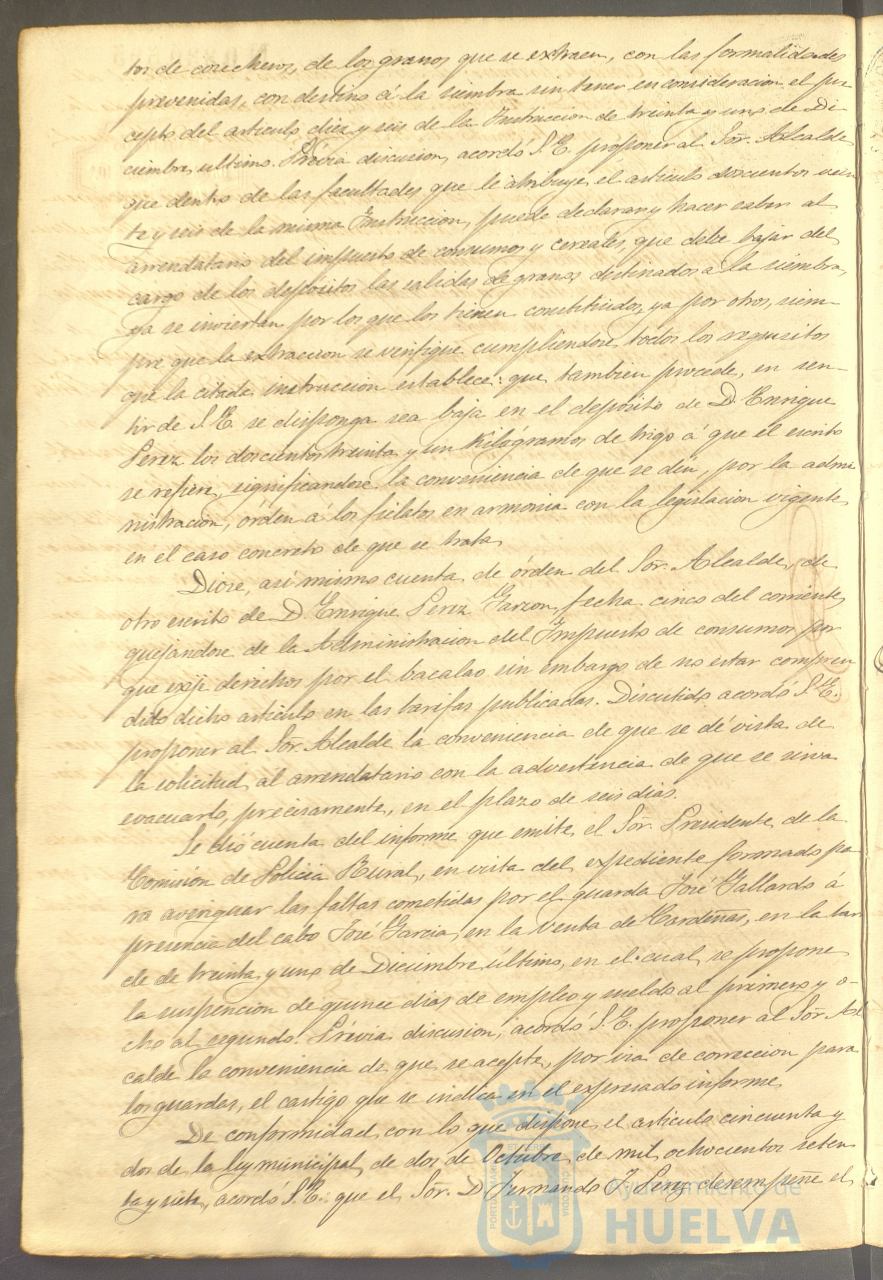 tor de cosecheros, de los granos que se extraen, con las formalidades
prevenidas, con destino á la siembra sin tener en consideracion el pre
cepto del articulo diez y seis de la Instruccion de treinta y uno de Di
ciembre último. Prévia discusion, acordó S.E. proponer al Sor. Alcalde
que dentro de las facultades que le atribuye el articulo doscientos vein
te y seis de la misma Instruccion, puede declarar y hacer saber al
arrendatario del impuesto de consumos y cereales, que debe bajar del
cargo de los depósitos las salidas de granos destinados a la siembra,
ya se inviertan por los que los tienen constituidos, ya por otros, siem-
pre que la extraccion se verifique cumpliendose todos los requisitos
que la citada instruccion establece: que tambien procede, en sen-
tir de S.E. se disponga sea baja en el depósito de D. Enrique
Perez los doscientos treinta y un kilogramos de trigo á que el escrito
se refiere, significandose la conveniencia de que se den, por la admi
nistracion, órden á los fielatos en armonia con la legislacion vigente
en el caso concreto de que se trata.
Diose, asi mismo cuenta, de órden del Sor. Alcalde, de
otro escrito de D. Enrique Perez Garzon, fecha cinco del corriente,
quejandose de la Administracion del Impuesto de consumos por
que exije derechos por el bacalao sin embargo de no estar compren
dido dicho articulo en las tarifas publicadas. Discutido acordó S.E.
proponer al Sor. Alcalde la conveniencia de que se dé vista de
la solicitud al arrendatario con la advertencia de que se sirva
evacuarlo, precisamente, en el plazo de seis dias.
Se dió cuenta del informe que emite el Sor. Presidente de la
Comision de Policia Rural, en vista del expediente formado pa
ra averiguar las faltas cometidas por el guarda José Gallardo á
presencia del cabo José Garcia, en la venta de Cardeñas, en la tar
de de treinta y uno de Diciembre último, en el cual se propone
la suspencion de quince dias de empleo y sueldo al primero y o-
cho al segundo. Prévia discusion, acordó S.E. proponer al Sor. Al
calde la conveniencia de que se acepte, por via de correccion para
los guardas, el castigo que se indica en el expresado informe.
De conformidad con lo que dispone el articulo cincuenta y
dos de la ley municipal, de dos de Octubre de mil ochocientos seten
ta y siete, acordó S.E. que el Sor. D. Fernando J. Perez desempeñe el
Ayuntamiento de
HUELVA